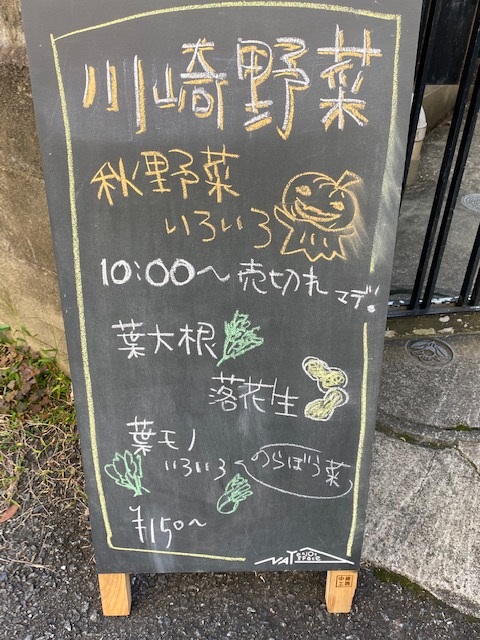 川崎野菜
秋野菜
いろいろ
10:00〜売切れマデ!
葉大根
落花生
葉モノ
いろいろ
のらぼう菜
¥150〜